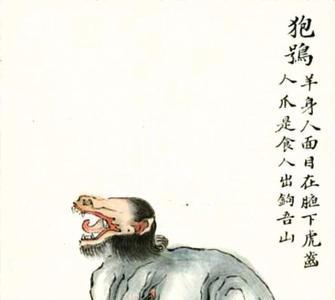 狍鴞
羊身人面目在腋下虎齒
人爪是食人出鉤吾山